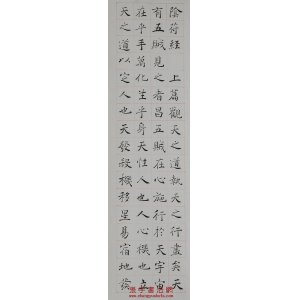 陰符經 上篇觀天之道執天之行盡矣天
有五賊見之者昌五賊在心施行於天宇宙
在乎手萬化生乎身天性人也人心機也立
天之道以定人也天發殺機移星易宿地發